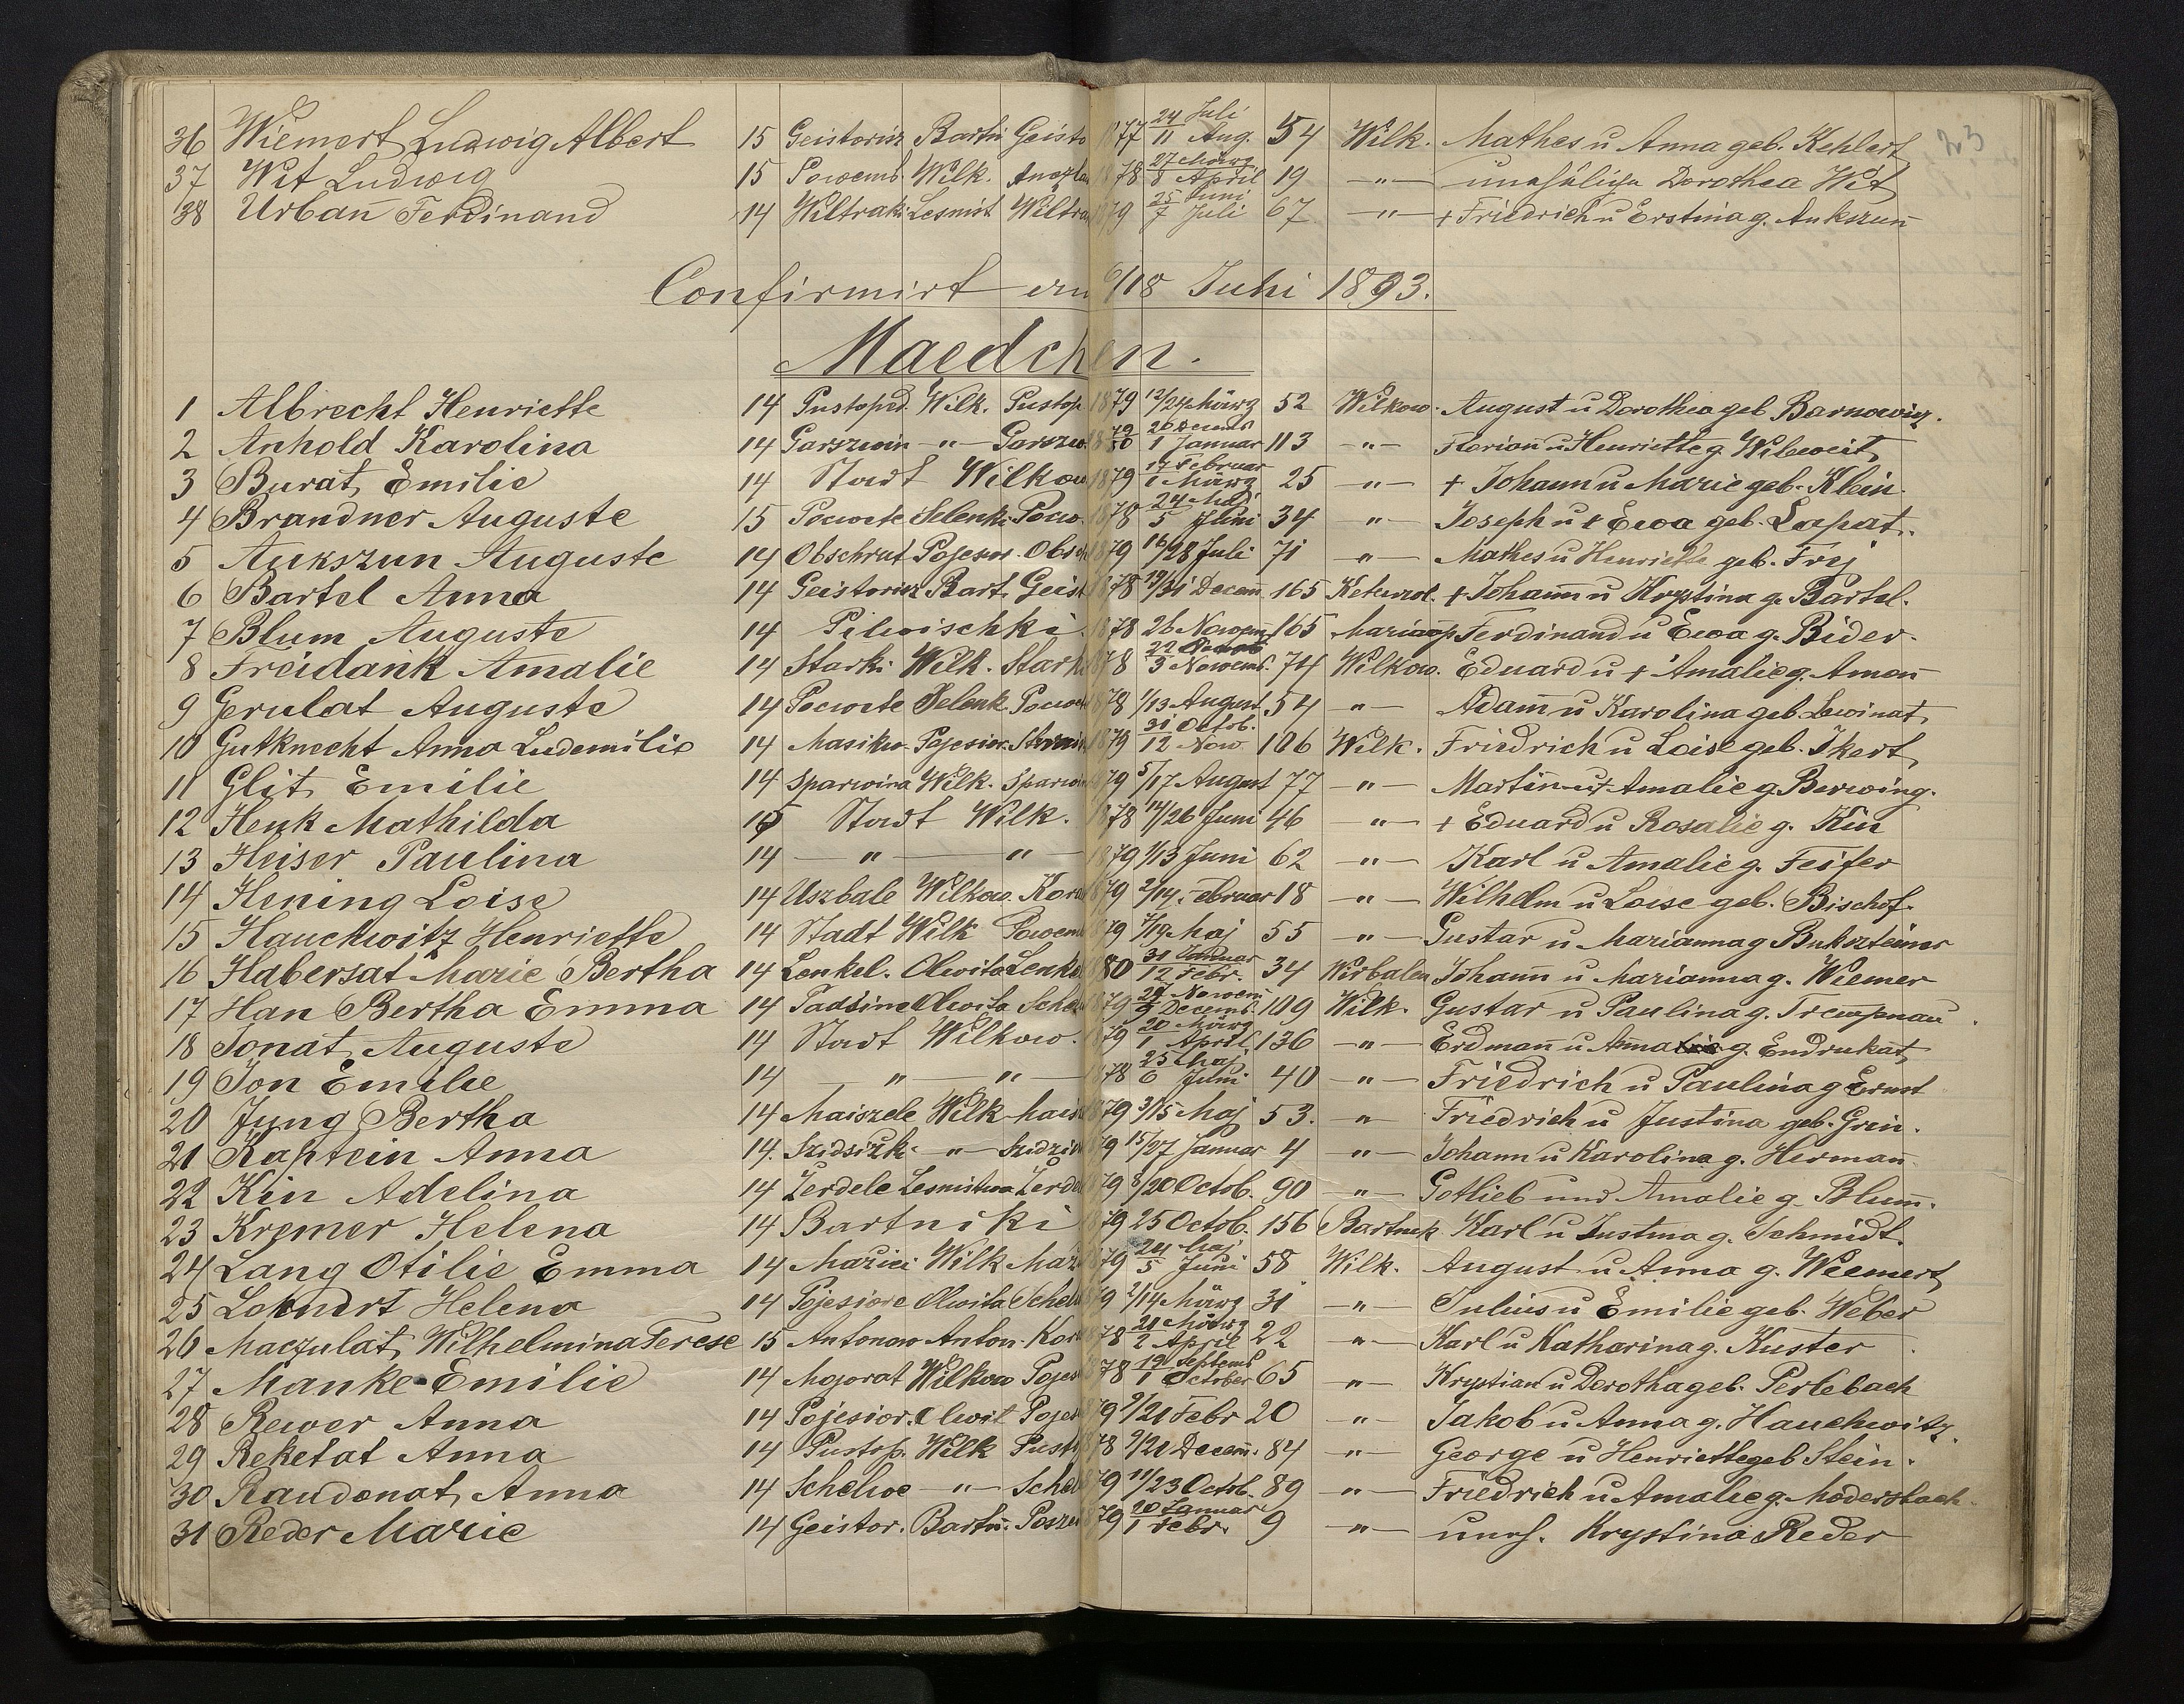 23
36 Wiemert Ludwig Albert 15 Geistorisz Bartn Geisto 1877 24 Juli / 11 Aug. 54 Wilk. Mathes u Anna geb. Kehlert
37 Wit Ludwig 15 Powemb. Wilk. 1878 27 März / 8 April 19 —"— unehliche Dorothea Wit
38 Urban̄ Ferdinand 14 Wiltraki Lesnist Wiltra 1879 25 Juni / 7 Juli 67 —"— + Friedrich u Erstina g. Aukszun̄
Confirmirt am 6/18 Juni 1893.
Maedchen.
1 Albrecht Henriette 14 Pustoped. Wilk. Pustop 1879 12/24 März 52 Wilkow. August u Dorothea geb Barnowizy.
2 Anhold Karolina 14 Garszwin —"— Garszw. 1879/80 20 Decemb / 1 Januar 113 —"— Florian̄ u Henriette g Wilweit
3 Burat Emilie 14 Stadt Wilkow 1879 17 Februar / 1 März 25 —"— + Johann u Marie geb. Klein.
4 Brandner Auguste 15 Pocwete Zelenk. Pocw. 1878 24 Maj / 5 Juni 34 —"— Joseph u + Ewa geb. Lapat.
5 Aukszun Auguste 14 Obschrut Pojesior. Obsch 1879 16/28 Juli 71 —"— Mathes u Henriette geb. Frej
6 Bartel Anna 14 Geistorisz Bart. Geist 1878 19/31 Decem̄ 165 Keturwl. + Johan̄ u Krystina g. Bartel.
7 Blum Auguste 14 Pilwischki. 1878 26 Novem̄ 165 Mariamp Ferdinand u Ewa g. Bider.
8 Freidank Amalie 14 Starki Wilk. Stark 1878 22 Octob / 3 Novemb. 74 Wilkow. Eduard u + Amalie g. Aman̄
9 Gerulat Auguste 14 Pocwete Zelenk. Pocwet 1878 1/13 August 54 —"— Adam̄ u Karolina geb Lewinat
10 Gutknecht Anna Ludemilie 14 Masiku. Pojesior. 1879 31 Octob. / 12 Now. 106 Wilk. Friedrich u Loise geb. Ikert
11 Glit Emilie 14 Sparwina Wilk. Sparwin 1879 5/17 August 77 —"— Martin u + Amalie g. Berwing.
12 Henk Mathilda 15 Stadt Wilk. 1878 14/26 Juni 46 —"— + Eduard u Rosalie g. Kin
13 Heiser Paulina 14 —"— —"— 1879 1/13 Juni 62 —"— Karl u Amalie g. Feifer
14 Hening Loise 14 Uszbale Wilkow. Kora 1879 2/14 Februar 18 —"— Wilhelm u Loise geb. Bischof.
15 Hauckwitz Henriette 14 Stadt Wilk Powem 1879 7/19 Maj 55 —"— Gustav u Marianna g Bukszteiner
16 Habersat Marie Bertha 14 Lenkel. Olwita Lenke 1880 31 Januar / 12 Febr. 34 Wirbalen Johan̄ u Marianna g. Wiemer
17 Han Bertha Emma 14 Padsine Olwita Sche 1879 27 Novem / 9 Decemb. 109 Wilk. Gustav u Paulina g. Trempnau
18 Jonat Auguste 14 Stadt Wilkow. 1879 20 März / 1 April 136 —"— Erdman̄ u Anna g. Endrukat
19 Jon Emilie 14 —"— —"— 1878 25 Maj / 6 Juni 40 —"— Friedrich u Paulina g Ernst
20 Jung Bertha 14 Maiszele Wilk Maisz 1879 3/15 Maj 53. —"— Friedrich u Justina geb. Grin.
21 Kaptein Anna 14. Szidsizk. —"— Szidzi 1879 15/27 Januar 4 —"— Johann u Karolina g. Herman̄.
22 Kin Adelina 14 Zerdele Lesnistwa Zerde 1879 8/20 Octob. 90 —"— Gotlieb und Amalie g. Blum̄.
23 Kremer Helena 14 Bartniki 1879 25 Octob. 156 Bartnik. Karl u Justina g. Schmidt.
24 Lang Otilie Emma 14 Marici Wilk Mari 1879 24 Maj / 5 Juni 58 Wilk. August u Anna g. Wiemert
25 Loknert Helena 14 Pojesiore Olwita Schel 1879 2/14 März 31 —"— Julius u Emilie geb. Weber
26 Maczulat Wilhelmina Terese 15 Antonow Anton. Kor 1878 21 März / 2 April 22 —"— Karl u Katharina g. Kuster
27 Manke Emilie 14 Mgorat Wilkow Pojes 1878 19 Septemb / 1 October 65 —"— Krystian u Dorotha geb. Perlebach
28 Rewer Anna 14 Pojesior. Olwit Pojes 1879 9/21 Febr 20 —"— Jakob u Anna g. Hauchwitz.
29 Reketat Anna 14 Pustop. Wilk Pust 1878 9/21 Decem̄. 84 —"— George u Henriette geb Stein.
30 Raudonat Anna 14 Schelwe —"— Schel 1879 11/23 Octob. 89 —"— Friedrich u Amalie g. Modersbach
31 Reder Marie 14 Geistor. Bartn. Poszei 1879 20 Januar / 1 Febr. 9 —"— uneh. Krystina Reder